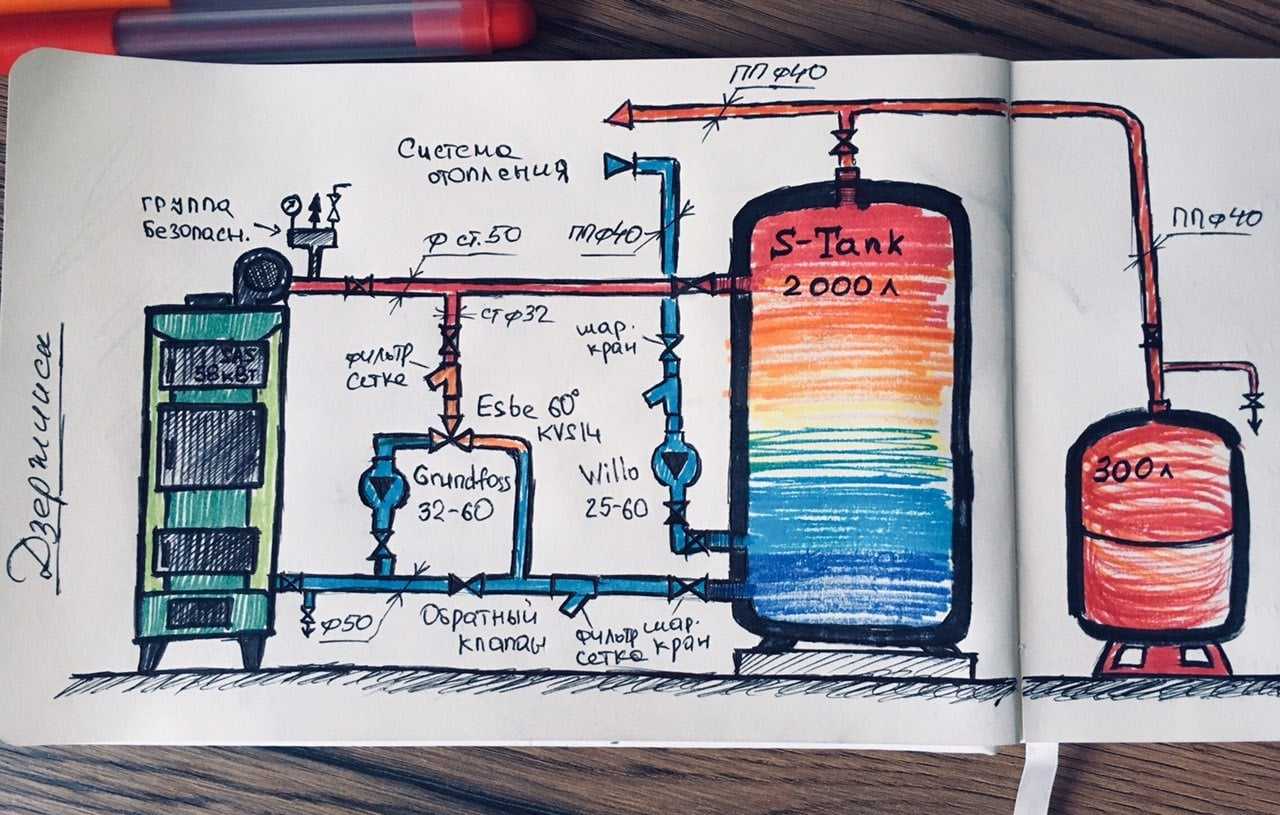 Дзержинск
группа
Безопасн.
Система
отопления
ПП ф40
ф ст.50
ПП ф40
ст ф32
фильтр
сетка
шар.
кран
Esbe 60°
KVS14
Grundfoss
32-60
Willo
25-60
SAS
S-Tank
2000 л
ПП ф40
300 л
ф50
Обратный
клапан
фильтр
сетка
шар.
кран